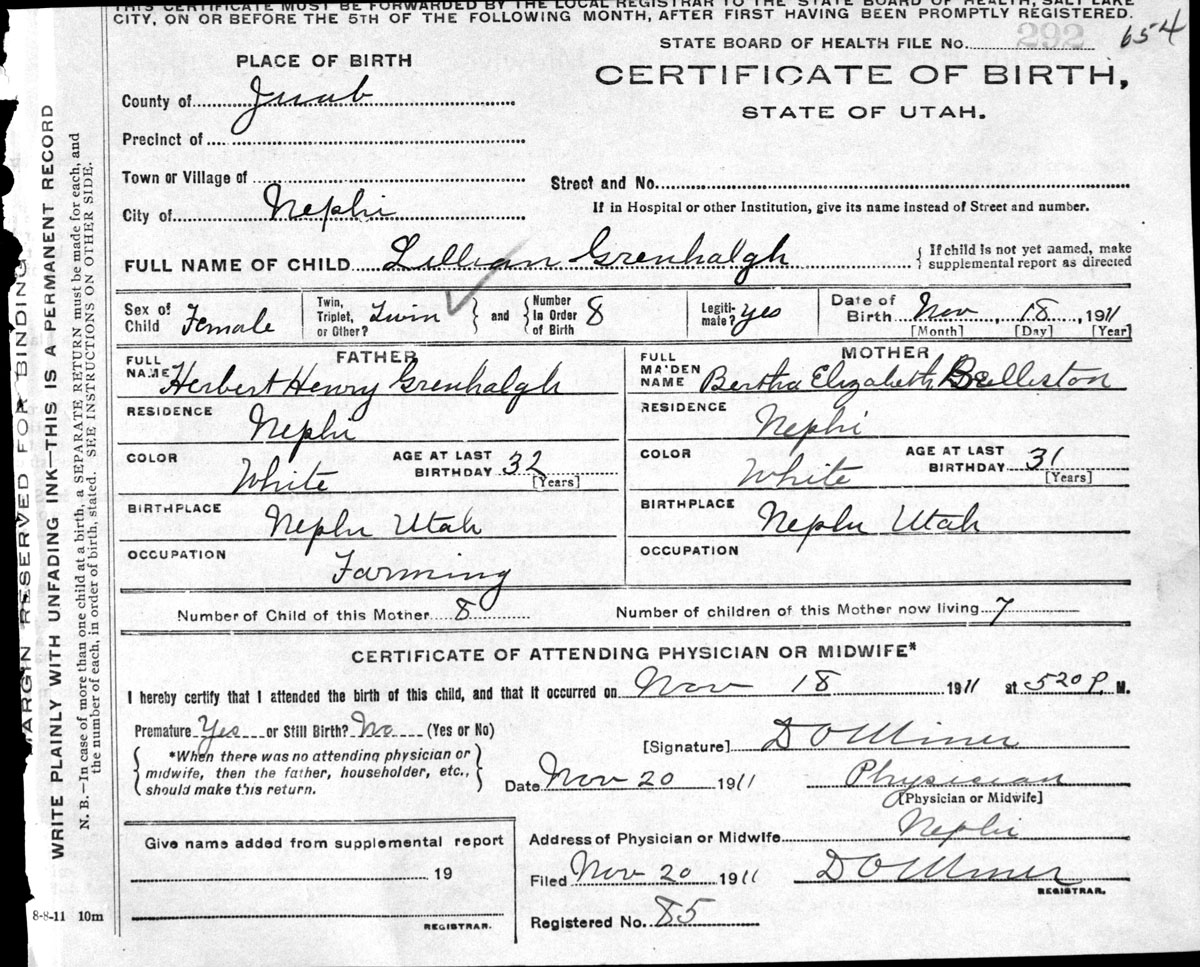 THIS CERTIFICATE MUST BE FORWARDED BY THE LOCAL REGISTRAR TO THE STATE BOARD OF HEALTH, SALT LAKE
CITY, ON OR BEFORE THE 5TH OF THE FOLLOWING MONTH, AFTER FIRST HAVING BEEN PROMPTLY REGISTERED.
STATE BOARD OF HEALTH FILE No. 292 654
PLACE OF BIRTH
CERTIFICATE OF BIRTH,
STATE OF UTAH.
County of Juab
Precinct of
Town or Village of
Street and No.
City of Nephi
If in Hospital or other Institution, give its name instead of Street and number.
FULL NAME OF CHILD Lillian Grenhalgh { If child is not yet named, make supplemental report as directed
Sex of Child Female Twin, Triplet, or Other? Twin } and { Number In Order of Birth 8 Legiti-mate? Yes Date of Birth Nov, 18, 1911
[Month] [Day] [Year]
FATHER
FULL NAME Herbert Henry Grenhalgh
RESIDENCE Nephi
COLOR White AGE AT LAST BIRTHDAY 32 [Years]
BIRTHPLACE Nephi Utah
OCCUPATION Farming
MOTHER
FULL MAIDEN NAME Bertha Elizabeth Belliston
RESIDENCE Nephi
COLOR White AGE AT LAST BIRTHDAY 31 [Years]
BIRTHPLACE Nephi Utah
OCCUPATION
Number of Child of this Mother 8 Number of children of this Mother now living 7
CERTIFICATE OF ATTENDING PHYSICIAN OR MIDWIFE*
I hereby certify that I attended the birth of this child, and that it occurred on Nov 18 1911 at 520 P. M.
Premature Yes or Still Birth? No (Yes or No)
{ *When there was no attending physician or
midwife, then the father, householder, etc.,
should make this return. }
[Signature] D O Miner
Date Nov 20 1911 Physician
[Physician or Midwife]
Address of Physician or Midwife Nephi
Filed Nov 20 1911 D O Miner
REGISTRAR.
Registered No. 85
Give name added from supplemental report
19
REGISTRAR.
8-8-11 10m
ARGIN RESERVED FOR BINDING
WRITE PLAINLY WITH UNFADING INK—THIS IS A PERMANENT RECORD
N. B.—In case of more than one child at a birth, a SEPARATE RETURN must be made for each, and
the number of each, in order of birth, stated. SEE INSTRUCTIONS ON OTHER SIDE.